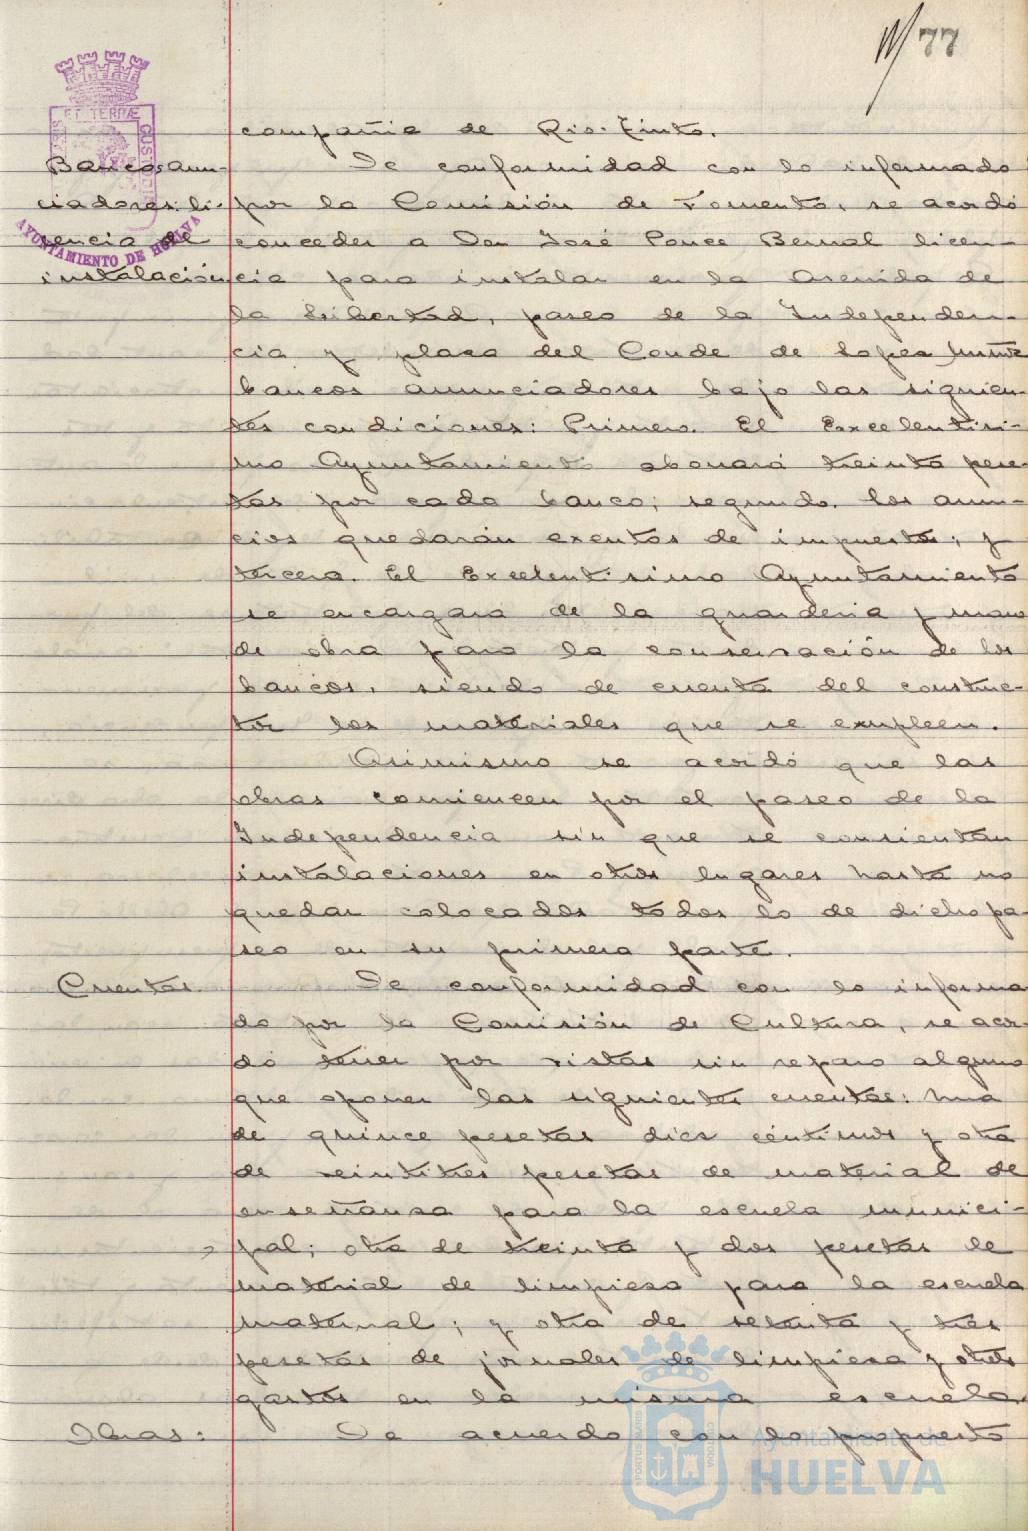 77
compañia de Rio-Tinto.
Bancos anun-
ciadores: li-
cencia de
instalación
De conformidad con lo informado
por la Comisión de Fomento, se acordó
conceder a Don José Ponce Bernal licen-
cia para instalar en la Avenida de
la Libertad, paseo de la Independen-
cia y plaza del Conde de Lopez Muñoz
bancos anunciadores bajo las siguien-
tes condiciones: Primero. El Excelentisi-
mo Ayuntamiento abonará treinta pese-
tas por cada banco; segundo. los anun-
cios quedarán exentos de impuestos; y
tercera. El Excelentisimo Ayuntamiento
se encargara de la guarderia y mano
de obra para la conservación de los
bancos, siendo de cuenta del construc-
tor los materiales que se empleen.
Asimismo se acordó que las
obras comiencen por el paseo de la
Independencia sin que se consientan
instalaciones en otros lugares hasta no
quedar colocados todos lo de dicho pa-
seo en su primera parte.
Cuentas.
De conformidad con lo informa
do por la Comisión de Cultura, se acor-
dó tener por vistas sin reparo alguno
que oponer las siguientes cuentas: Una
de quince pesetas diez céntimos y otra
de veintitres pesetas de material de
enseñanza para la escuela munici-
pal; otra de treinta y dos pesetas de
material de limpieza para la escuela
maternal; y otra de setenta y tres
pesetas de jornales de limpieza y otros
gastos en la misma escuela.
Obras:
De acuerdo con lo propuesto
AYUNTAMIENTO DE HUELVA
Ayuntamiento de
HUELVA